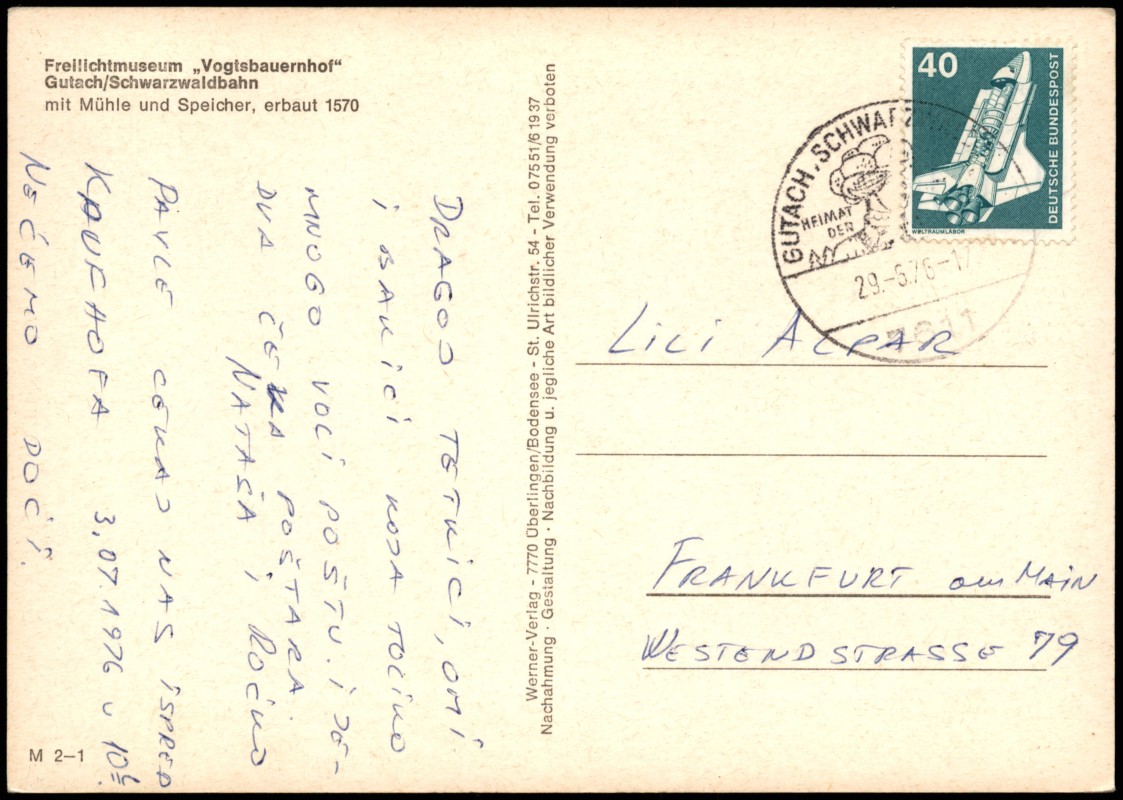 Freilichtmuseum „Vogtsbauernhof“
Gutach/Schwarzwaldbahn
mit Mühle und Speicher, erbaut 1570
DRAGOJ TETKICI, OMI
I BAKICI KOJA TOLIKO
MNOGO VOLI POŠTU. I JE-
DVA ČEKA POŠTARA
NATAŠA I ROĆKO
PAVLE ČEKAJ NAS ISPRED
KAUFHOFA 3.07.1976 u 10
NEĆEMO DOĆI.
M 2–1
Werner-Verlag - 7770 Überlingen/Bodensee - St. Ulrichstr. 54 - Tel. 07551/61937
Nachahmung · Gestaltung · Nachbildung u. jegliche Art bildlicher Verwendung verboten
40
DEUTSCHE BUNDESPOST
WELTRAUMLABOR
GUTACH, SCHWARZ
HEIMAT
DER
29.-6.76-17
7611
LILI ALPAR
FRANKFURT am MAIN
WESTENDSTRASSE 79